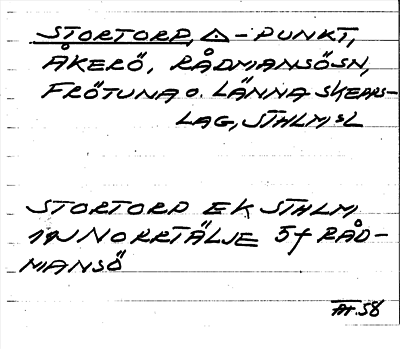 STORTORP, △-PUNKT,
ÅKERÖ, RÅDMANSÖSN,
FRÖTUNA O. LÄNNA SKEPPS-
LAG, STHLMSL
STORTORP EK STHLM
11N NORRTÄLJE 5f RÅD-
MANSÖ